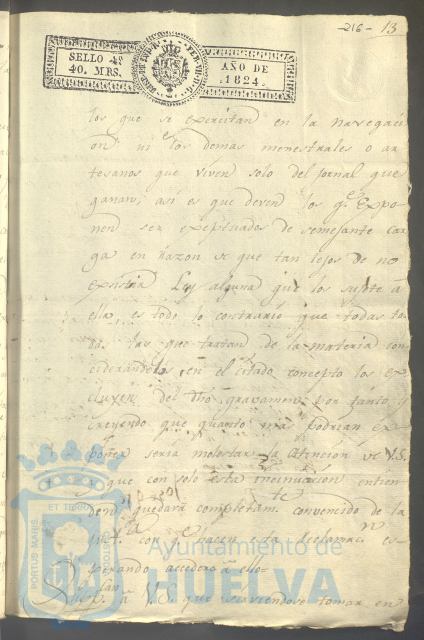 -216- 13
SELLO 4º
40. MRS.
AÑO DE
.1824.
los que se exercitan en la navegaci
on ni los demas menestrales o ar
tesanos que viven solo del jornal que
ganan; asi es que deven los qe. Expo
nen ser exeptuados de semejante car
ga en razon a que tan lejos de no
existir Ley alguna que los sujete á
ella, es todo lo contrario que todas
las que tratan de la materia con
ciderandolos en el citado concepto los ex
cluyen del dho gravamen por tanto y
creyendo que quanto mas podrian ex
poner seria molestar la atencion de V.S.
y que con solo esta incinuacion entien
den quedara completamte. convencido de la
con qe. hacen esta reclamacn. es
perando accedera á ello
Supp. á V.S. que sirviendose tomar en
ET TERRE
PORTUS MARIS
CUSTODIA
Ayuntamiento de
HUELVA